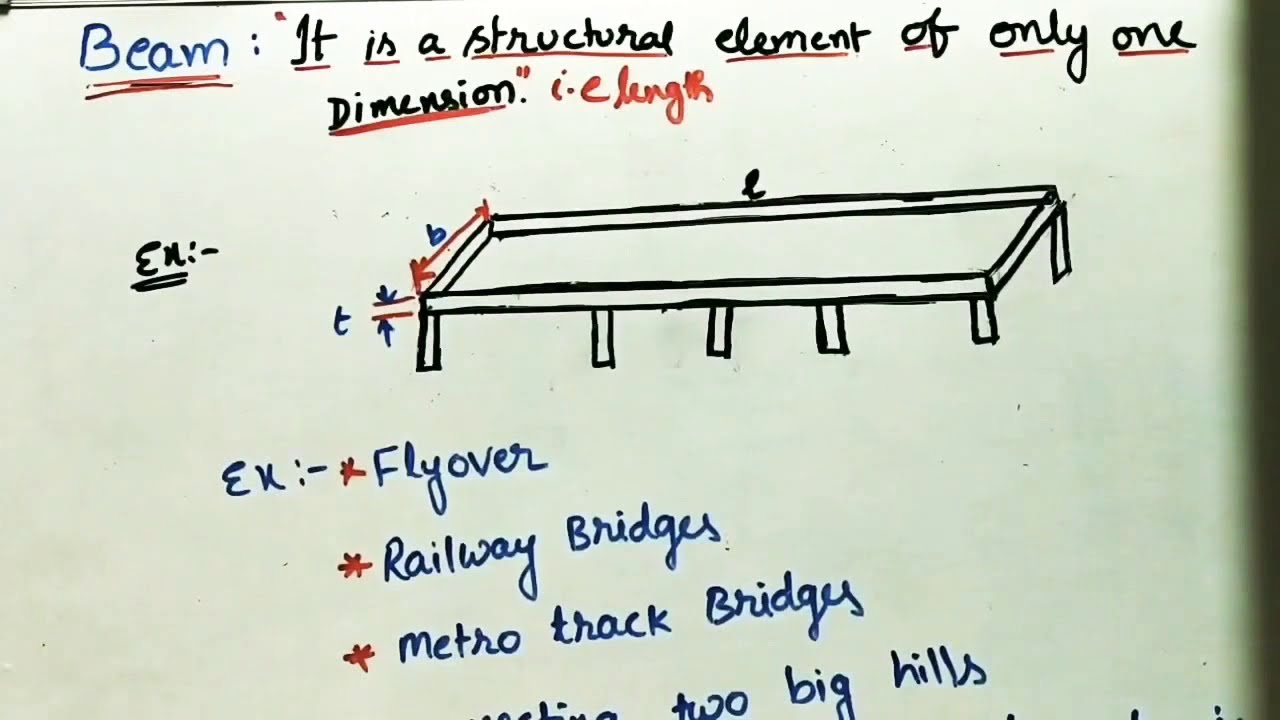 Beam: "It is a structural element of only one
Dimension." i.e length
l
b
Ex:-
t
Ex:- * Flyover
* Railway Bridges
* Metro track Bridges
two big hills